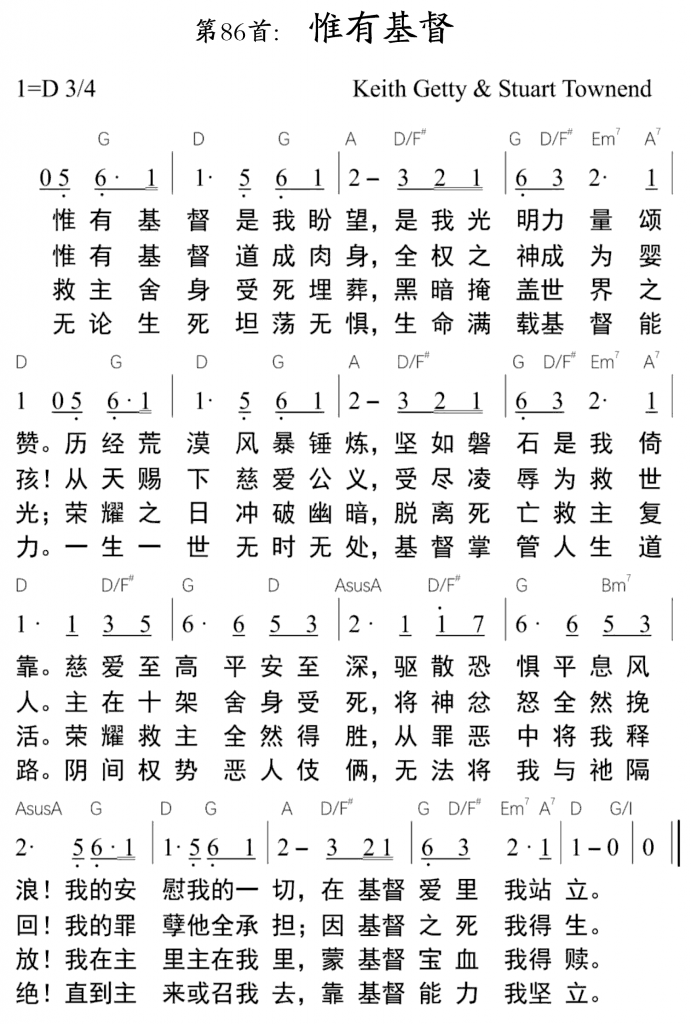 第86首: 惟有基督
1=D 3/4 Keith Getty & Stuart Townend
G D G A D/F# G D/F# Em7 A7
05 6· 1 | 1· 5 6 1 | 2– 3 2 1 | 6 3 2· 1
惟有基督是我盼望，是我光明力量颂
惟有基督道成肉身，全权之神成为婴
救主舍身受死埋葬，黑暗掩盖世界之
无论生死坦荡无惧，生命满载基督能
D G D G A D/F# G D/F# Em7 A7
1 05 6·1 | 1· 5 6 1 | 2– 3 2 1 | 6 3 2· 1
赞。历经荒漠风暴锤炼，坚如磐石是我倚
孩！从天赐下慈爱公义，受尽凌辱为救世
光；荣耀之日冲破幽暗，脱离死亡救主复
力。一生一世无时无处，基督掌管人生道
D D/F# G D AsusA D/F# G Bm7
1· 1 3 5 | 6· 6 5 3 | 2· 1 1 7 | 6· 6 5 3 |
靠。慈爱至高平安至深，驱散恐惧平息风
人。主在十架舍身受死，将神忿怒全然挽
活。荣耀救主全然得胜，从罪恶中将我释
路。阴间权势恶人伎俩，无法将我与祂隔
AsusA G D G A D/F# G D/F# Em7 A7 D G/I
2· 5 6·1 | 1·5 6 1 | 2– 3 21 | 6 3 2·1 | 1–0 | 0 ‖
浪！我的安慰我的一切，在基督爱里我站立。
回！我的罪孽他全承担；因基督之死我得生。
放！我在主里主在我里，蒙基督宝血我得赎。
绝！直到主来或召我去，靠基督能力我坚立。